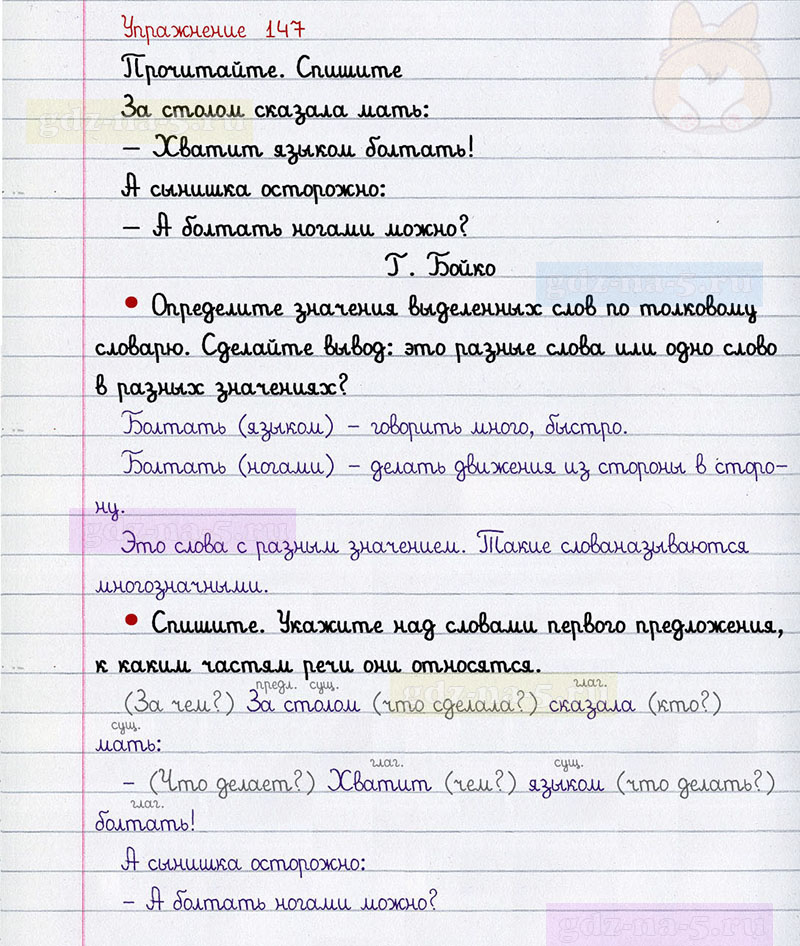 Упражнение 147
Прочитайте. Спишите
За столом сказала мать:
gdz-na-5.ru
– Хватит языком болтать!
А сынишка осторожно:
– А болтать ногами можно?
Г. Бойко
gdz-na-5.ru
• Определите значения выделенных слов по толковому
словарю. Сделайте вывод: это разные слова или одно слово
в разных значениях?
Болтать (языком) – говорить много, быстро.
Болтать (ногами) – делать движения из стороны в сторо-
ну.
gdz-na-5.ru
Это слова с разным значением. Такие слованазываются
многозначными.
• Спишите. Укажите над словами первого предложения,
к каким частям речи они относятся.
предл. сущ. глаг.
gdz-na-5.ru
(За чем?) За столом (что сделала?) сказала (кто?)
сущ.
мать:
глаг. сущ.
– (Что делает?) Хватит (чем?) языком (что делать?)
глаг.
болтать!
А сынишка осторожно:
– А болтать ногами можно?
gdz-na-5.ru